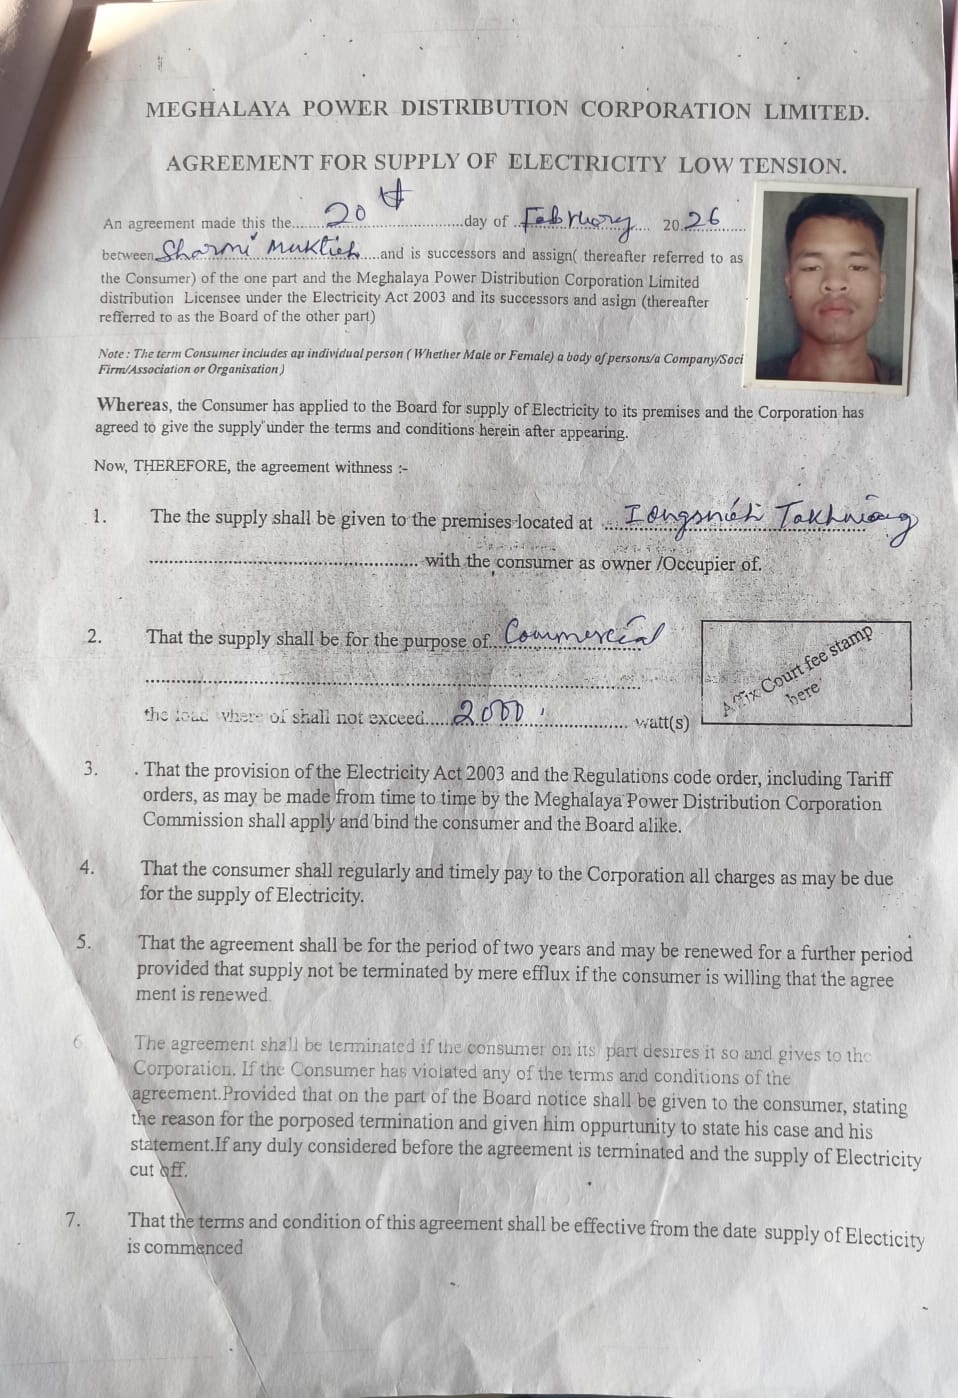 MEGHALAYA POWER DISTRIBUTION CORPORATION LIMITED.
AGREEMENT FOR SUPPLY OF ELECTRICITY LOW TENSION.
An agreement made this the......20th......day of ..February.... 2026
between Sharmi Muktieh ....and is successors and assign( thereafter referred to as
the Consumer) of the one part and the Meghalaya Power Distribution Corporation Limited
distribution Licensee under the Electricity Act 2003 and its successors and asign (thereafter
refferred to as the Board of the other part)
Note : The term Consumer includes an individual person ( Whether Male or Female) a body of persons/a Company/Soci
Firm/Association or Organisation)
Whereas, the Consumer has applied to the Board for supply of Electricity to its premises and the Corporation has
agreed to give the supply under the terms and conditions herein after appearing.
Now, THEREFORE, the agreement withness :-
1. The the supply shall be given to the premises located at ..... Iongsnieh Takhniang
.............................................. with the consumer as owner /Occupier of.
2. That the supply shall be for the purpose of..Commercial
Affix Court fee stamp
here
the load where of shall not exceed.....2000.................. watt(s)
3. . That the provision of the Electricity Act 2003 and the Regulations code order, including Tariff
orders, as may be made from time to time by the Meghalaya Power Distribution Corporation
Commission shall apply and bind the consumer and the Board alike.
4. That the consumer shall regularly and timely pay to the Corporation all charges as may be due
for the supply of Electricity.
5. That the agreement shall be for the period of two years and may be renewed for a further period
provided that supply not be terminated by mere efflux if the consumer is willing that the agree
ment is renewed.
6 The agreement shall be terminated if the consumer on its part desires it so and gives to the
Corporation. If the Consumer has violated any of the terms and conditions of the
agreement.Provided that on the part of the Board notice shall be given to the consumer, stating
the reason for the porposed termination and given him oppurtunity to state his case and his
statement.If any duly considered before the agreement is terminated and the supply of Electricity
cut off.
7. That the terms and condition of this agreement shall be effective from the date supply of Electicity
is commenced